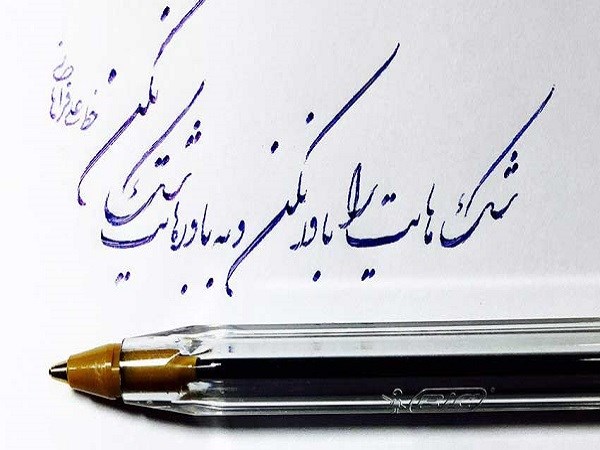 شک هایت را باور نکن و به باورهایت شک نکن
BIC